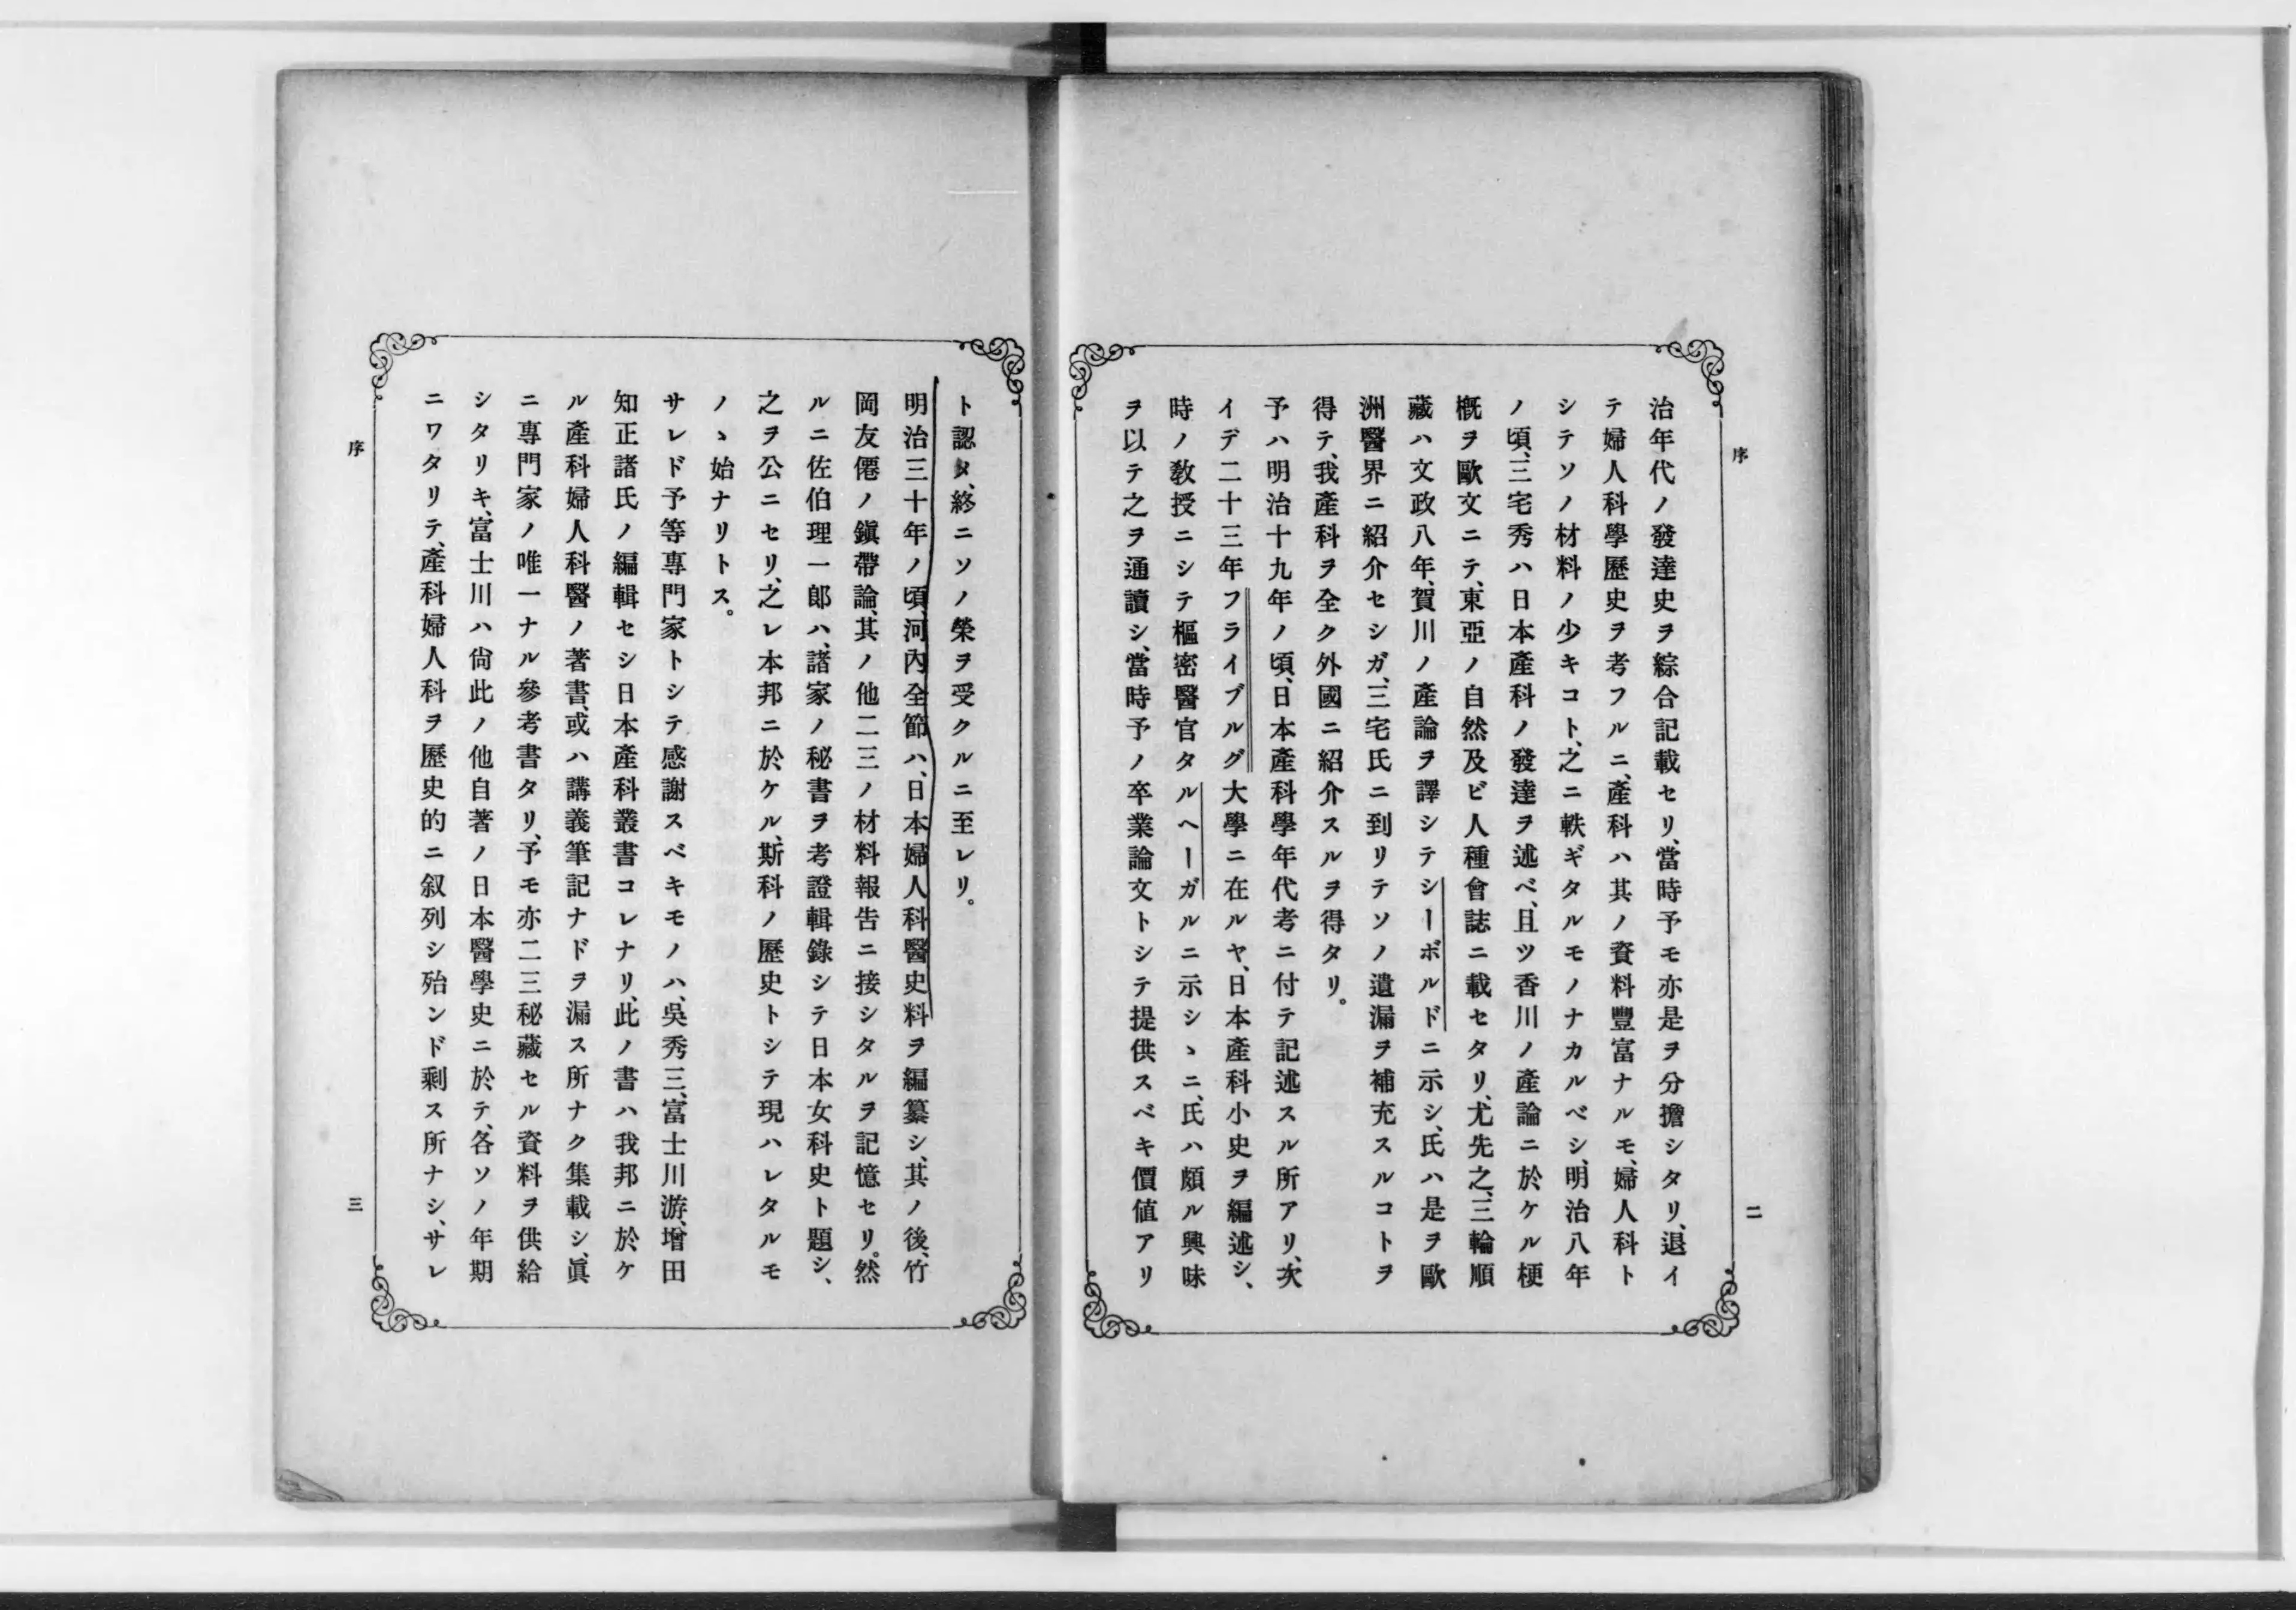 序
二
治年代ノ發達史ヲ綜合記載セリ、當時予モ亦是ヲ分擔シタリ、退イ
テ婦人科學歷史ヲ考フルニ、產科ハ其ノ資料豐富ナルモ、婦人科ト
シテソノ材料ノ少キコト、之ニ軼ギタルモノナカルベシ、明治八年
ノ頃、三宅秀ハ日本產科ノ發達ヲ述ベ、且ツ香川ノ產論ニ於ケル梗
槪ヲ歐文ニテ、東亞ノ自然及ビ人種會誌ニ載セタリ、尤先之、三輪順
藏ハ文政八年、賀川ノ產論ヲ譯シテシーボルドニ示シ、氏ハ是ヲ歐
洲醫界ニ紹介セシガ、三宅氏ニ到リテソノ遺漏ヲ補充スルコトヲ
得テ、我產科ヲ全ク外國ニ紹介スルヲ得タリ。
予ハ明治十九年ノ頃、日本產科學年代考ニ付テ記述スル所アリ、次
イデ二十三年フライブルグ大學ニ在ルヤ、日本產科小史ヲ編述シ、
時ノ敎授ニシテ樞密醫官タルヘーガルニ示シヽニ、氏ハ頗ル興味
ヲ以テ之ヲ通讀シ、當時予ノ卒業論文トシテ提供スベキ價値アリ
ト認メ、終ニソノ榮ヲ受クルニ至レリ。
明治三十年ノ頃、河內全節ハ、日本婦人科醫史料ヲ編纂シ、其ノ後、竹
岡友僊ノ鎭帶論、其ノ他二三ノ材料報告ニ接シタルヲ記憶セリ。然
ルニ佐伯理一郞ハ、諸家ノ秘書ヲ考證輯錄シテ日本女科史ト題シ、
之ヲ公ニセリ、之レ本邦ニ於ケル、斯科ノ歷史トシテ現ハレタルモ
ノヽ始ナリトス。
サレド予等專門家トシテ感謝スベキモノハ、吳秀三、富士川游、增田
知正諸氏ノ編輯セシ日本產科叢書コレナリ、此ノ書ハ我邦ニ於ケ
ル產科婦人科醫ノ著書、或ハ講義筆記ナドヲ漏ス所ナク集載シ、眞
ニ專門家ノ唯一ナル參考書タリ、予モ亦二三秘藏セル資料ヲ供給
シタリキ、富士川ハ尙此ノ他自著ノ日本醫學史ニ於テ、各ソノ年期
ニワタリテ、產科婦人科ヲ歷史的ニ叙列シ殆ンド剩ス所ナシ、サレ
序
三